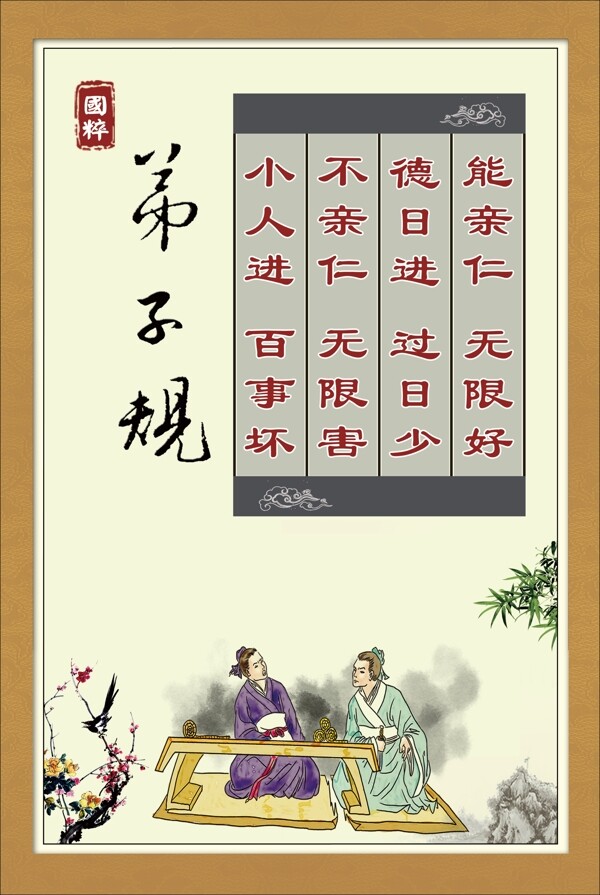 能亲仁 无限好
德日进 过日少
不亲仁 无限害
小人进 百事坏
弟子规
國粹